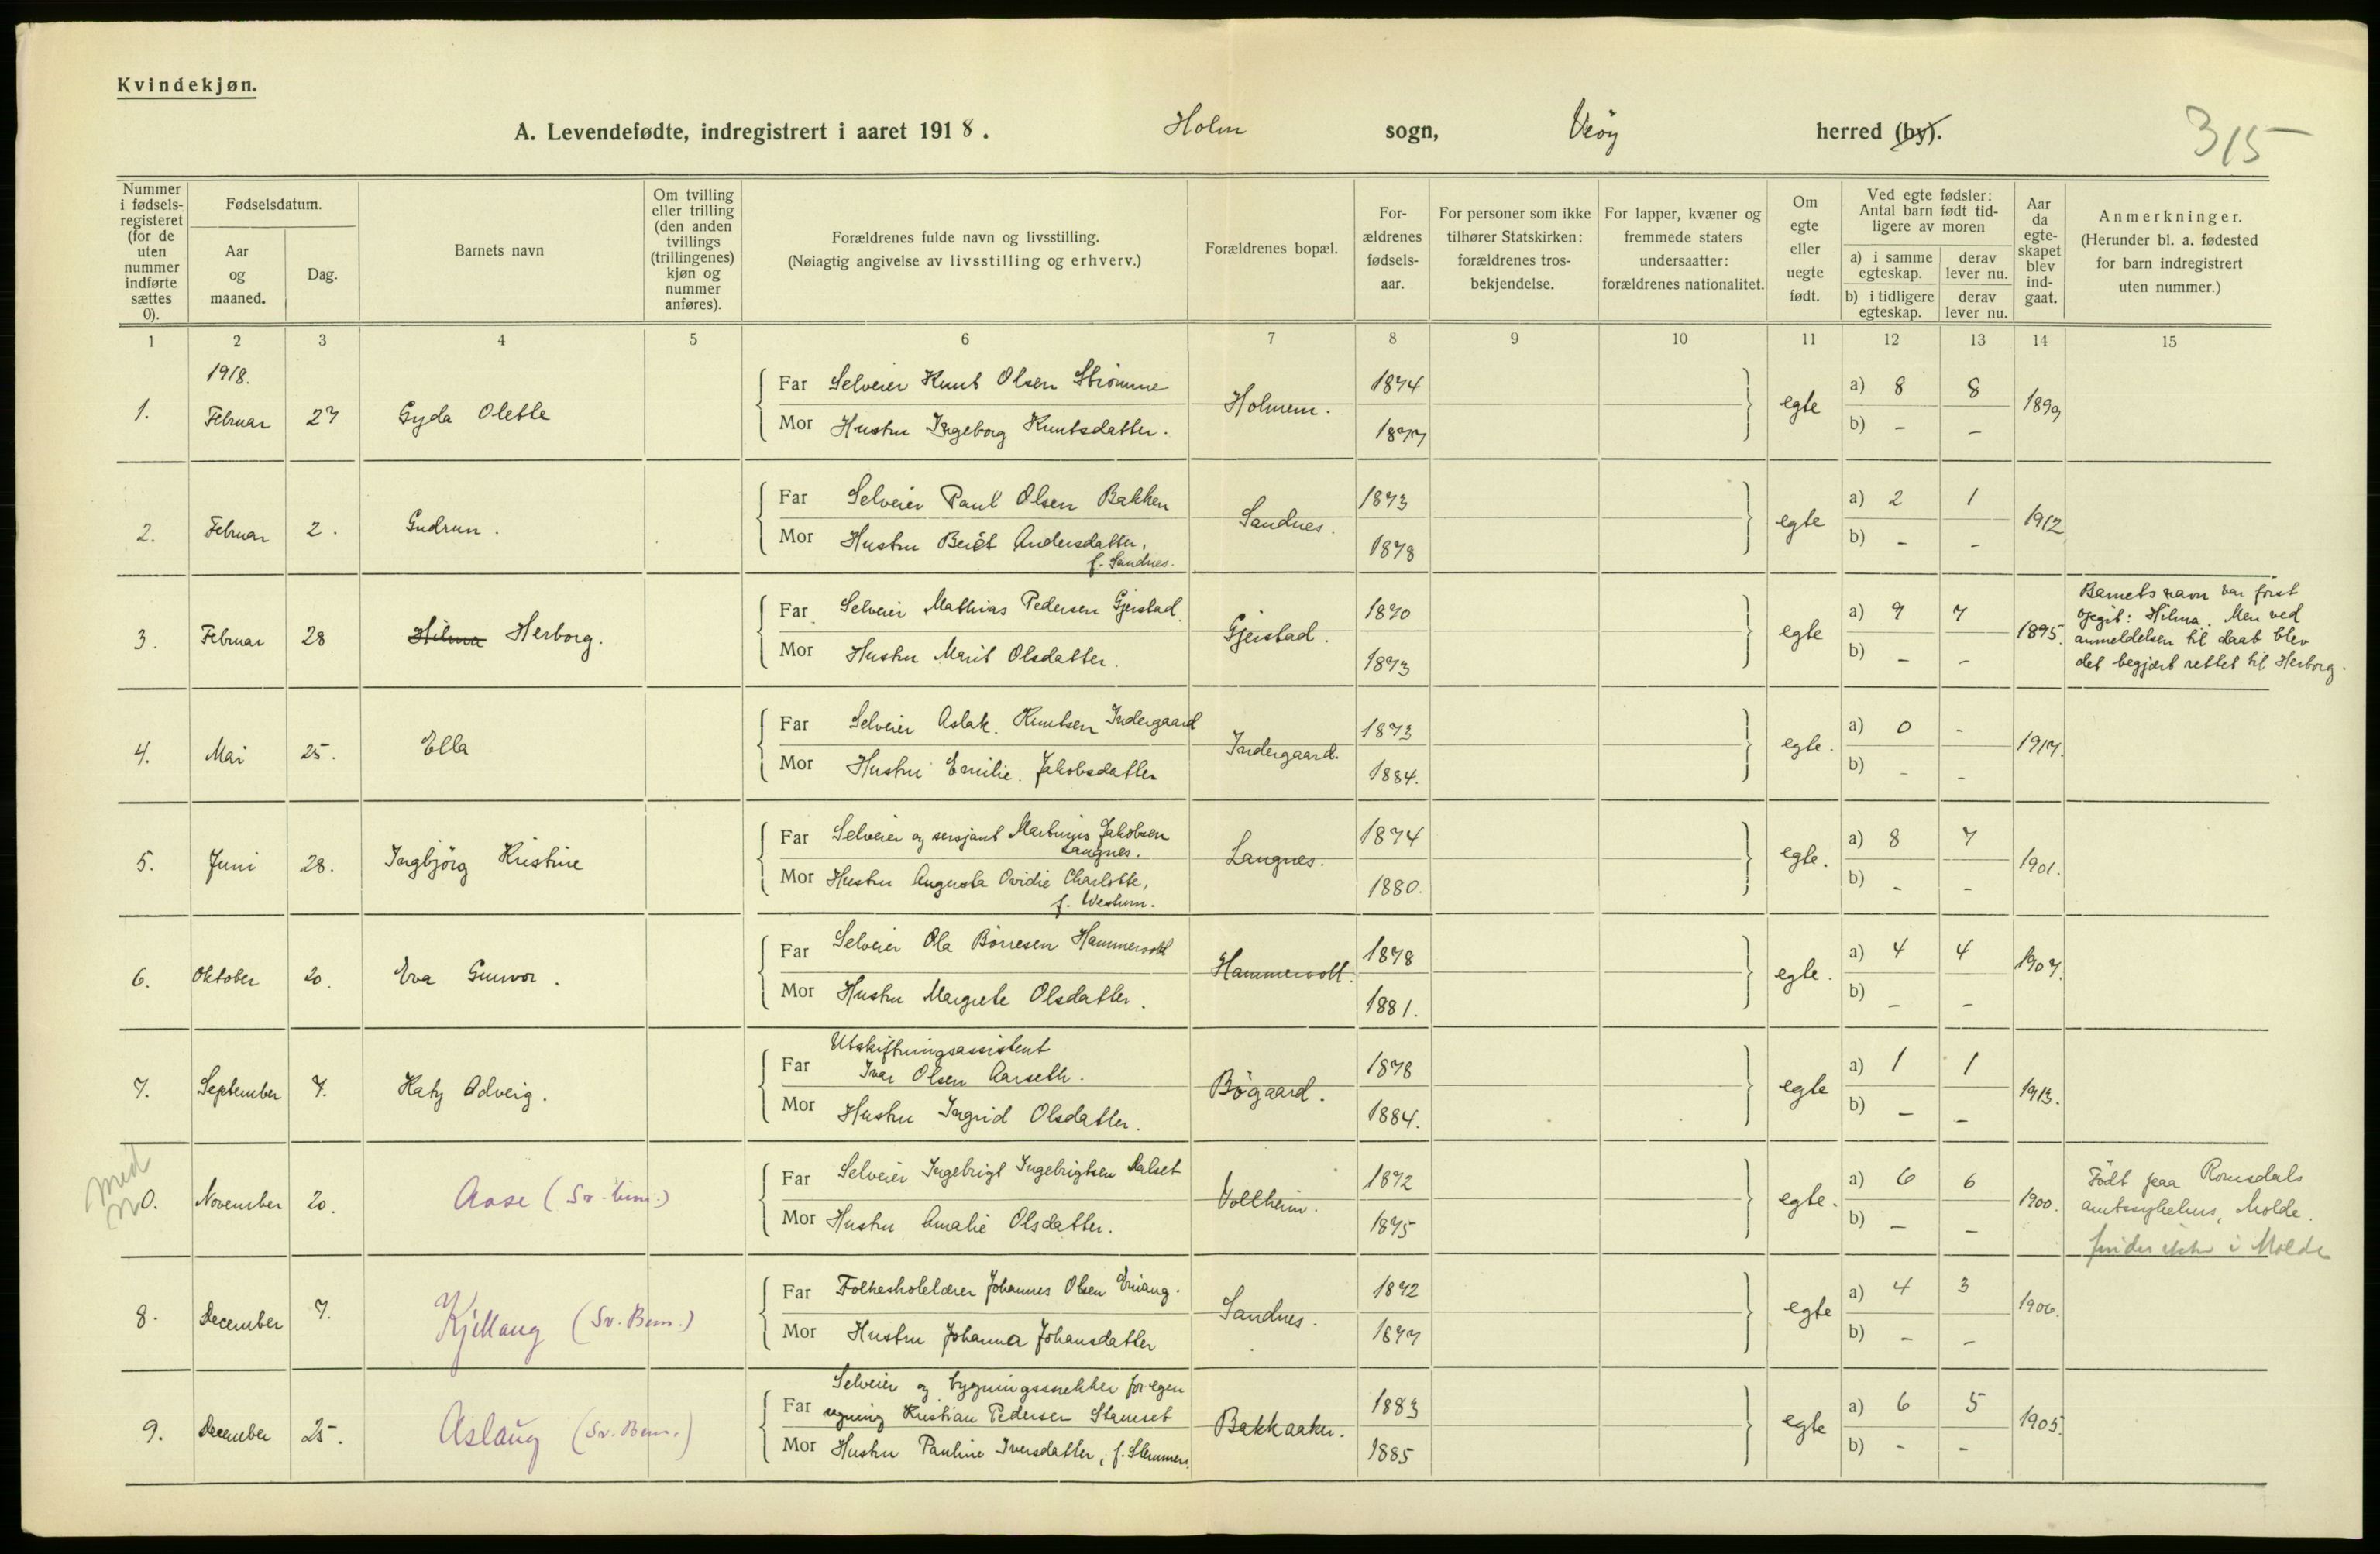 Kvindekjøn.
A. Levendefødte, indregistrert i aaret 1918. Holm sogn, Veöy herred (by).
315
Nummer i fødsels-registeret (for de uten nummer indførte sættes 0).
Fødselsdatum.
Aar og maaned.
Dag.
Barnets navn
Om tvilling eller trilling (den anden tvillings (trillingenes) kjøn og nummer anføres).
Forældrenes fulde navn og livsstilling.
(Nøiagtig angivelse av livsstilling og erhverv.)
Forældrenes bopæl.
For-ældrenes fødsels-aar.
For personer som ikke tilhører Statskirken: forældrenes tros-bekjendelse.
For lapper, kvæner og fremmede staters undersaatter: forældrenes nationalitet.
Om egte eller uegte født.
Ved egte fødsler: Antal barn født tid-ligere av moren
a) i samme egteskap.
derav lever nu.
b) i tidligere egteskap.
derav lever nu.
Aar da egte-skapet blev ind-gaat.
Anmerkninger.
(Herunder bl. a. fødested for barn indregistrert uten nummer.)
1 2 3 4 5 6 7 8 9 10 11 12 13 14 15
1918.
1. Februar 27 Gyda Olette
Far Selveier Knut Olsen Strömme Holmem. 1874 egte a) 8 8 1899
Mor Hustru Ingeborg Knutsdatter. 1877 b) - -
2. Februar 2. Gudrun.
Far Selveier Paul Olsen Bakken Sandnes. 1873 egte a) 2 1 1912
Mor Hustru Berit Andersdatter, 1878 b) - -
f. Sandnes.
3. Februar 28 Hilma Herborg.
Far Selveier Mathias Pedersen Gjerstad. Gjerstad. 1870 egte a) 9 7 1895.
Mor Hustru Marit Olsdatter. 1873 b) - -
Barnets navn var först
opgit: Hilma. Men ved
anmeldelsen til daab blev
det begjært rettet til Herborg.
4. Mai 25. Ella
Far Selveier Aslak. Knutsen Indergaard Indergaard. 1873 egte. a) 0 - 1917.
Mor Hustru Emilie. Jakobsdatter 1884. b) - -
5. Juni 28. Ingbjörg Kristine
Far Selveier og sersjant Martinus Jakobsen Langnes. 1874 egte. a) 8 7 1901.
Langnes.
Mor Hustru Augusta Ovidie Charlotte, 1880. b) - -
f. Westum.
6. Oktober 20. Eva Gunvor.
Far Selveier Ola Börresen Hammervold Hammervoll. 1878 egte. a) 4 4 1907.
Mor Hustru Margrete Olsdatter. 1881. b) - -
7. September 7. Katy Odveig.
Utskiftningsassistent
Far Ivar Olsen Aarseth. Bögaard. 1878 egte a) 1 1 1913.
Mor Hustru Ingrid Olsdatter. 1884. b) - -
med
0. November 20. Aase (Sv. bem.)
Far Selveier Ingebrigt Ingebrigtsen Dalset Vollheim. 1872 egte. a) 6 6 1900.
Mor Hustru Amalie Olsdatter. 1875 b) - -
Födt paa Romsdals
amtssykehus, Molde.
findes ikke i Molde
8. December 7. Kjellaug (Sv. Bem.)
Far Folkeskolelærer Johannes Olsen Sandnes. 1872 egte a) 4 3 1906.
Mor Hustru Johanna Johansdatter 1877 b) - -
9. December 25. Aslaug (Sv. Bem.)
Selveier og bygningssnekker for egen
Far regning Kristian Pedersen Stamset Bakkaaker. 1883 egte a) 6 5 1905.
Mor Hustru Pauline Iversdatter, f. Stemmem. 1885 b) - -